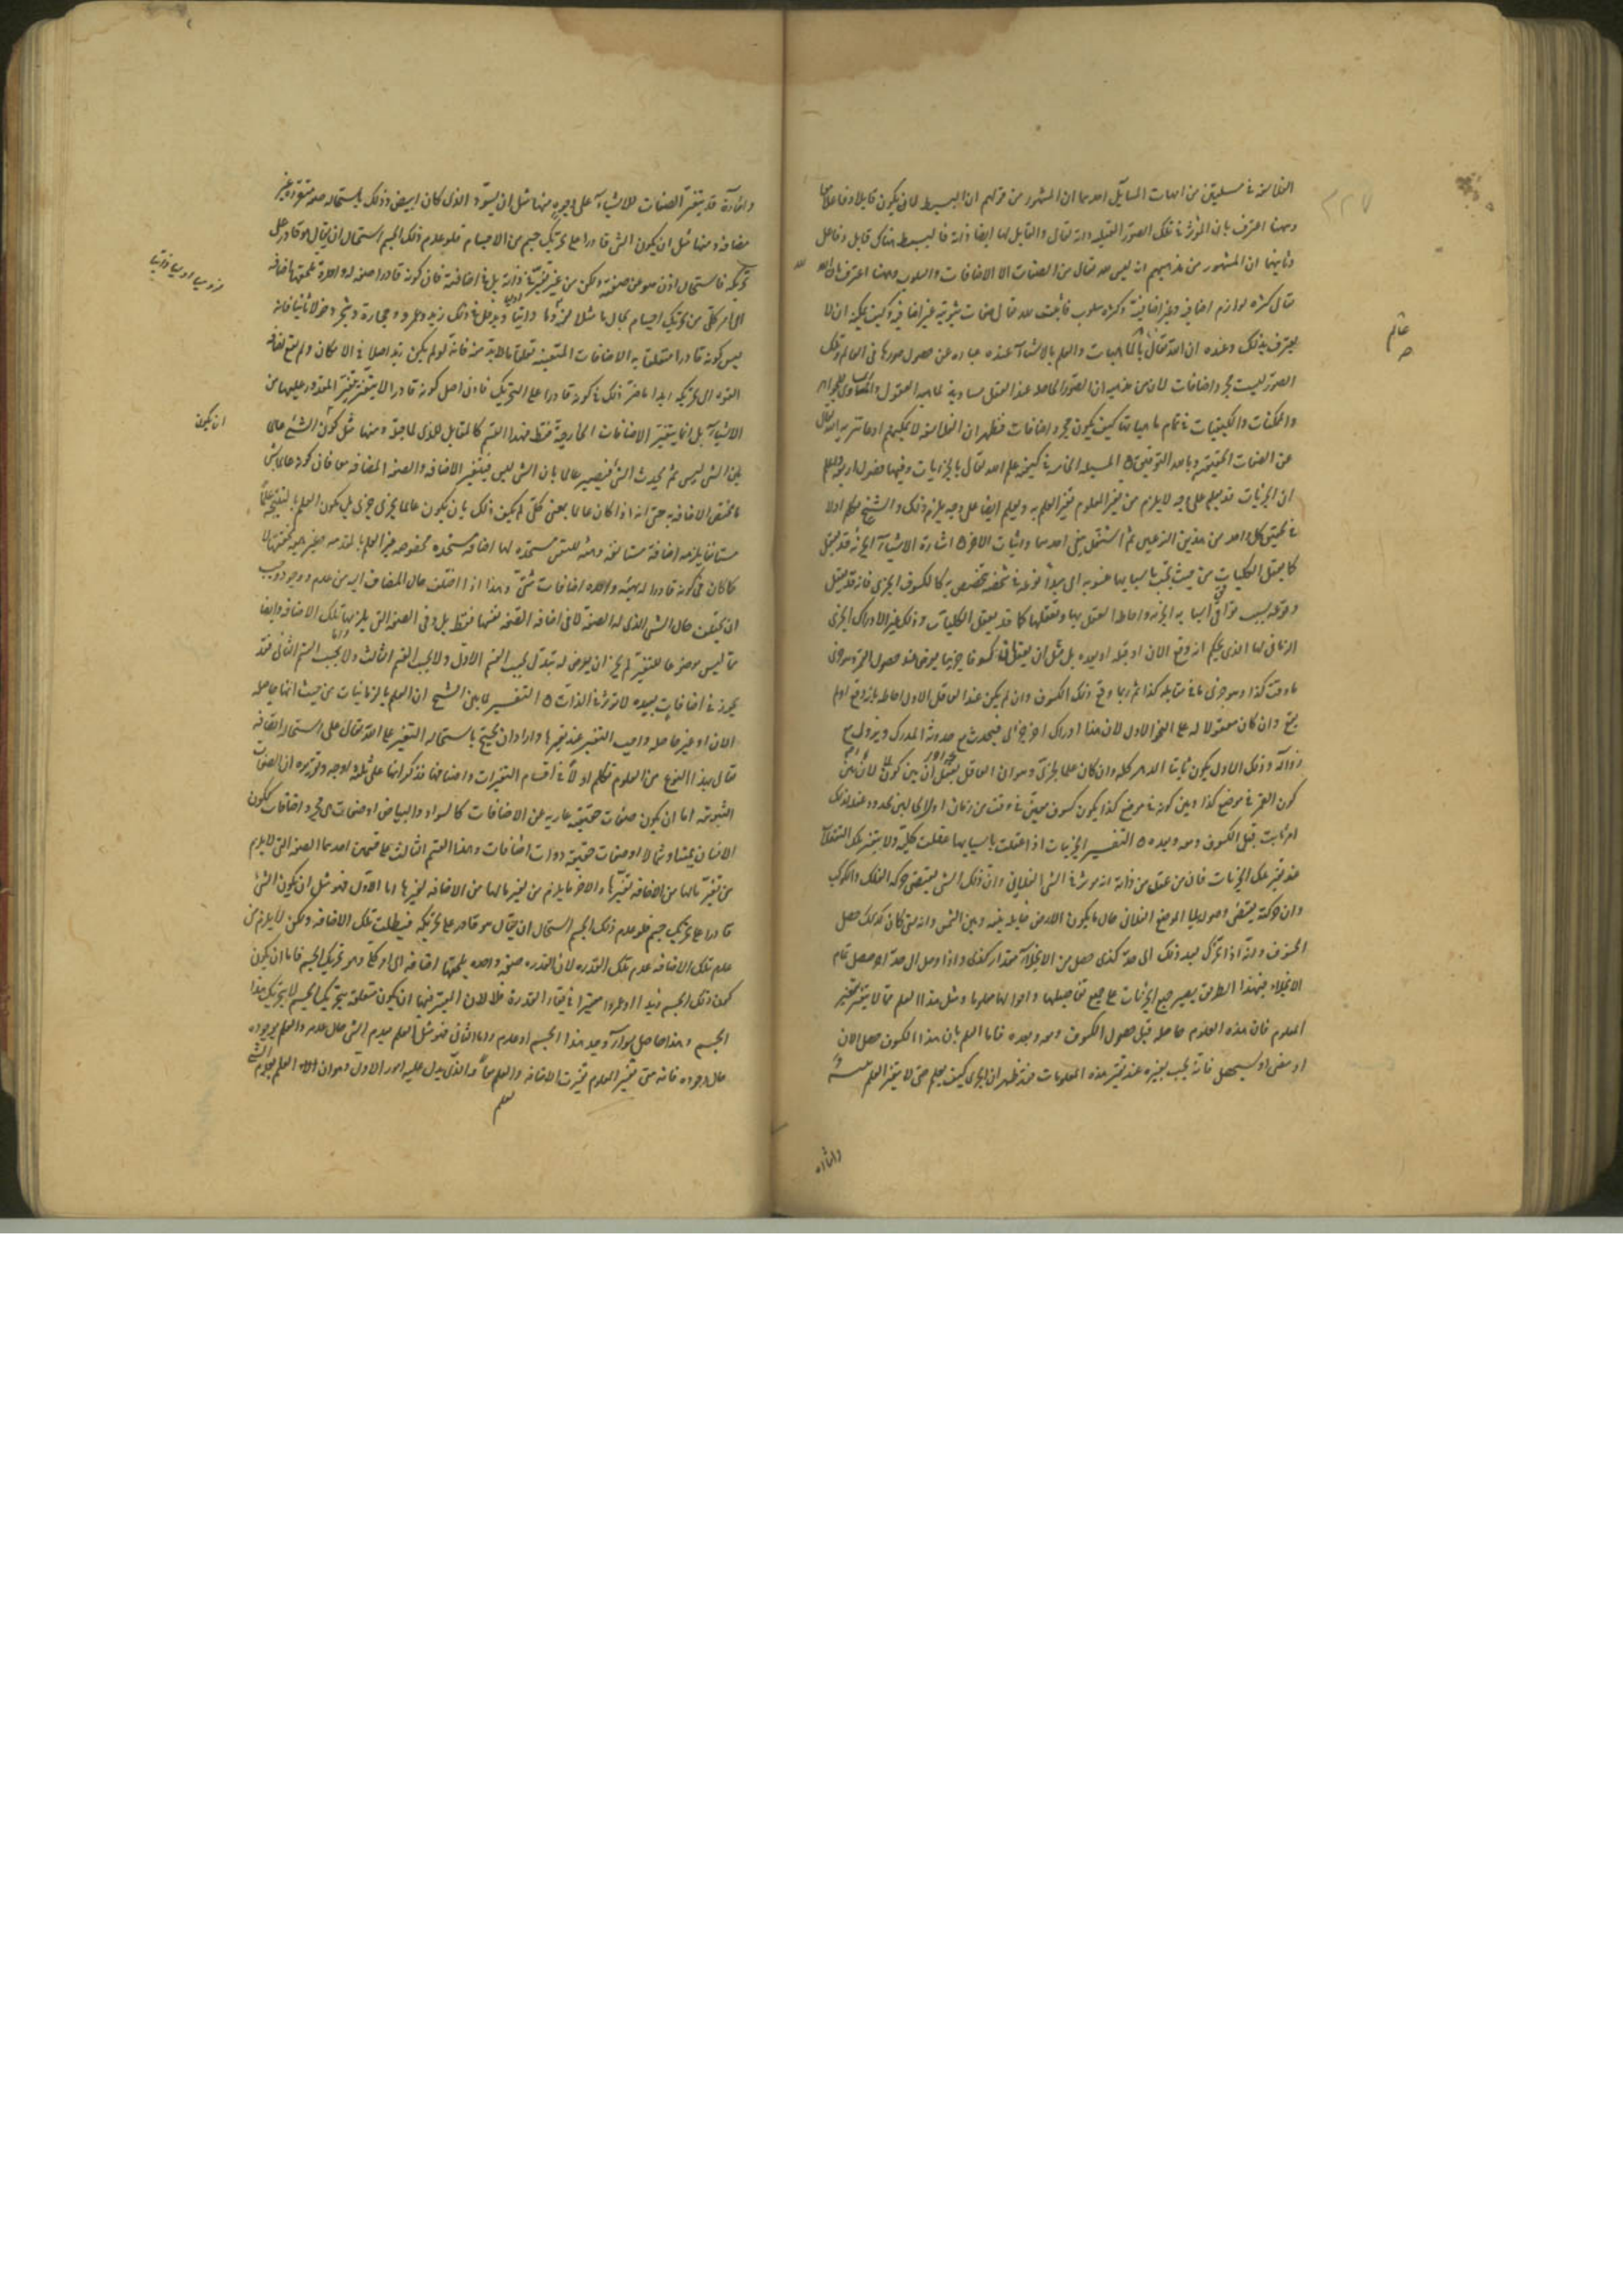 الفلاسفة في مسئلتين من امهات المسائل احديهما ان المشهور من قولهم ان البسيط لا يكون قابلا وفاعلا معا
وههنا اعترف بان المؤثر في تلك الصور العقلية ذاته تعالى والقابل لها ايضا ذاته فالبسيط هناك قابل وفاعل
وثانيهما ان المشهور من مذهبهم انه ليس لله تعالى من الصفات الا الاضافات والسلوب وههنا اعترف بان لله
تعالى كثرة لوازم اضافية وغير اضافية وكثرة سلوب فاثبت لله تعالى صفات ثبوتية غير اضافية وكيف يمكنه ان لا
يعترف بذلك وعنده ان الله تعالى عالم بالماهيات والعلم بالاشياء عنده عبارة عن حصول صورها في العالم وتلك
الصور ليست مجرد اضافات لان من مذهبه ان الصور الحاصلة عند العقل مساوية لماهية المعقول والمساوي للجواهر
والممكنات والكيفيات في تمام ماهياتها كيف يكون مجرد اضافات فظهر ان الفلاسفة لا يمكنهم ادعاء تنزيه الله تعالى
عن الصفات الحقيقية وبالله التوفيق المسئلة الخامسة في كيفية علم الله تعالى بالجزئيات وفيها فصول اربعة اعلم
ان الجزئيات قد يعلم على وجه لا يلزم من تغير المعلوم تغير العلم به ويعلم ايضا على وجه يلزم ذلك والشيخ تكلم اولا
في تحقيق كل واحد من هذين النوعين ثم اشتغل بنفي احدهما واثبات الاخر اشارة الاشياء الجزئية قد يعقل
كما يعقل الكليات من حيث تجب باسبابها منسوبة الى مبدأ نوعه في شخصه تتخصص به كالكسوف الجزئي فانه قد يعقل
وقوعه بسبب توافي اسبابه الجزئية واحاطة العقل بها وتعقلها كما قد يعقل الكليات وذلك غير الادراك الجزئي
الزماني لها الذي يحكم انه وقع الان او قبله او بعده بل مثل ان يعقل ان كسوفا جزئيا يعرض عند حصول القمر وهو جزئي
ما وقت كذا وهو جزئي ما في مقابلة كذا ثم ربما وقع ذلك الكسوف وان لم يكن عند العاقل الاول احاطة بانه وقع او لم
يقع وان كان معقولا له على النحو الاول لان هذا ادراك اخر جزئي يحدث مع حدوث المدرك ويزول مع
زواله وذلك الاول يكون ثابتا الدهر كله وان كان علما بجزئي وهو ان العاقل يعقل ان بين كون
كون القمر في موضع كذا وبين كونه في موضع كذا يكون كسوف معين في وقت من زمان اول الحالين محدود عقله ذلك
امر ثابت قبل الكسوف ومعه وبعده التفسير الجزئيات اذا عقلت باسبابها عقلت كلية ولا يتغير تلك التعقلات
عند تغير تلك الجزئيات فان من عقل من ذاته انه مؤثر في الشيء الفلاني وان ذلك الشيء يقتضي حركة الفلك والكوكب
وان حركته يقتضي وصولها الى الموضع الفلاني حال ما يكون الارض حايلة بينه وبين الشمس وانه متى كان كذلك حصل
الخسوف وانه اذا تحرك بعد ذلك الى حد كذى حصل من الانجلاء مقدار كذى واذا وصل الى حد اخر حصل تمام
الانجلاء فبهذا الطريق يصير جميع الجزئيات على جميع تفاصيلها واحوالها معلوما ومثل هذا العلم مما لا يتغير بتغير
المعلوم فان هذه العلوم حاصلة قبل حصول الكسوف ومعه وبعده فاما العلم بان هذا الكسوف حصل الان
او مضى او سيحصل فانه يجب تغيره عند تغير هذه المعلومات فقد ظهر ان الجزئي كيف يعلم حتى لا يتغير العلم
واشارة
عالم
صح
٢٢٧
واشارة قد يتغير الصفات للاشياء على وجوه منها مثل ان يسود الذي كان ابيض وذلك باستحالة صفة متقررة غير
مضافة ومنها مثل ان يكون الشيء قادرا على تحريك جسم من الاجسام فلو عدم ذلك الجسم استحال ان يقال هو قادر على
تحريكه فاستحال اذن هو عن صفته ولكن من غير تغير في ذاته بل في اضافته فان كونه قادرا صفة له واحدة تلحقها اضافة
الى امر كلي من تحريك اجسام بحال ما مثلا لزوما اوليا ذاتيا ويدخل في ذلك زيد وعمرو وحجارة وشجر دخولا ثانيا فانه
ليس كونه قادرا متعلقا به الاضافات المتعينة تعلق ما لا بد منه فانه لو لم يكن زيد اصلا في الامكان ولم يقع اضافة
القوة الى تحريكه ابدا ما ضر ذلك في كونه قادرا على التحريك فاذن اصل كونه قادرا لا يتغير بتغير المقدور عليها من
الاشياء بل انما يتغير الاضافات الخارجية فقط فهذا القسم كالمقابل للذي قبله ومنها مثل كون الشيء عالما
بان الشيء ليس ثم يحدث الشيء فيصير عالما بان الشيء ايس فيتغير الاضافة والصفة المضافة معا فان كونه عالما بشيء
ما تختص الاضافة به حتى انه اذا كان عالما بمعنى كلي لم يكف ذلك بان يكون عالما بجزئي جزئي بل يكون العلم بالنتيجة علما
مستانفا يلزمه اضافة مستانفة وهيئة للنفس مستجدة لها اضافة مستجدة مخصوصة غير العلم بالمقدمة وغير هيئة تحققها لا
كما كان في كونه قادرا له بهيئة واحدة اضافات شتى وهذا اذا اختلف حال المضاف اليه من عدم ووجود وجب
ان يختلف حال الشيء الذي له الصفة لا في اضافة الصفة نفسها فقط بل وفي الصفة التي يلزمها تلك الاضافة وايضا
مما ليس موضوعا للتغير لم يجز ان يعرض له تبدل بحسب القسم الاول ولا بحسب القسم الثالث واما بحسب القسم الثاني فقد
يجوز في اضافات بعيدة لا تؤثر في الذات التفسير لما بين الشيخ ان العلم بالزمانيات من حيث انها حاصلة
الان او غير حاصلة واجب التغير عند تغيرها واراد ان يحتج باستحالة التغير على الله تعالى على استحالة اتصافه
تعالى بهذا النوع من العلوم تكلم اولا في اقسام التغيرات واصنافها فذكر انها على ثلثة اوجه وتقريره ان الصفات
الثبوتية اما ان يكون صفات حقيقية عارية عن الاضافات كالسواد والبياض او صفات هي مجرد اضافات ككون
الانسان يمينا وشمالا او صفات حقيقية ذوات اضافات وهذا القسم الثالث على قسمين احدهما الصفة التي لا يلزم
من تغير ما لها من الاضافة تغيرها والاخر ما يلزم من تغير ما لها من الاضافة تغيرها اما الاول فهو مثل ان يكون الشيء
قادرا على تحريك جسم فلو عدم ذلك الجسم استحال ان يقال هو قادر على تحريكه فبطلت تلك الاضافة ولكن لا يلزم من
عدم تلك الاضافة عدم تلك القدرة لان القدرة صفة واحدة يلحقها اضافة الى امر كلي وهو تحريك الجسم فاما ان يكون
كون ذلك الجسم زيدا او عمروا معتبرا في بقاء القدرة فلا لان المعتبر فيها ان يكون متعلقة بتحريك الجسم لا بتحريك هذا
الجسم وهذا حاصل سواء وجد هذا الجسم او عدم واما الثاني فهو مثل العلم بعدم الشيء حال عدمه والعلم بوجوده
حال وجوده فانه متى تغير المعلوم تغيرت الاضافة والعلم معا والذي يدل عليه امور الاول وهو ان العلم بعدم الشيء
يعلم
ان يكون